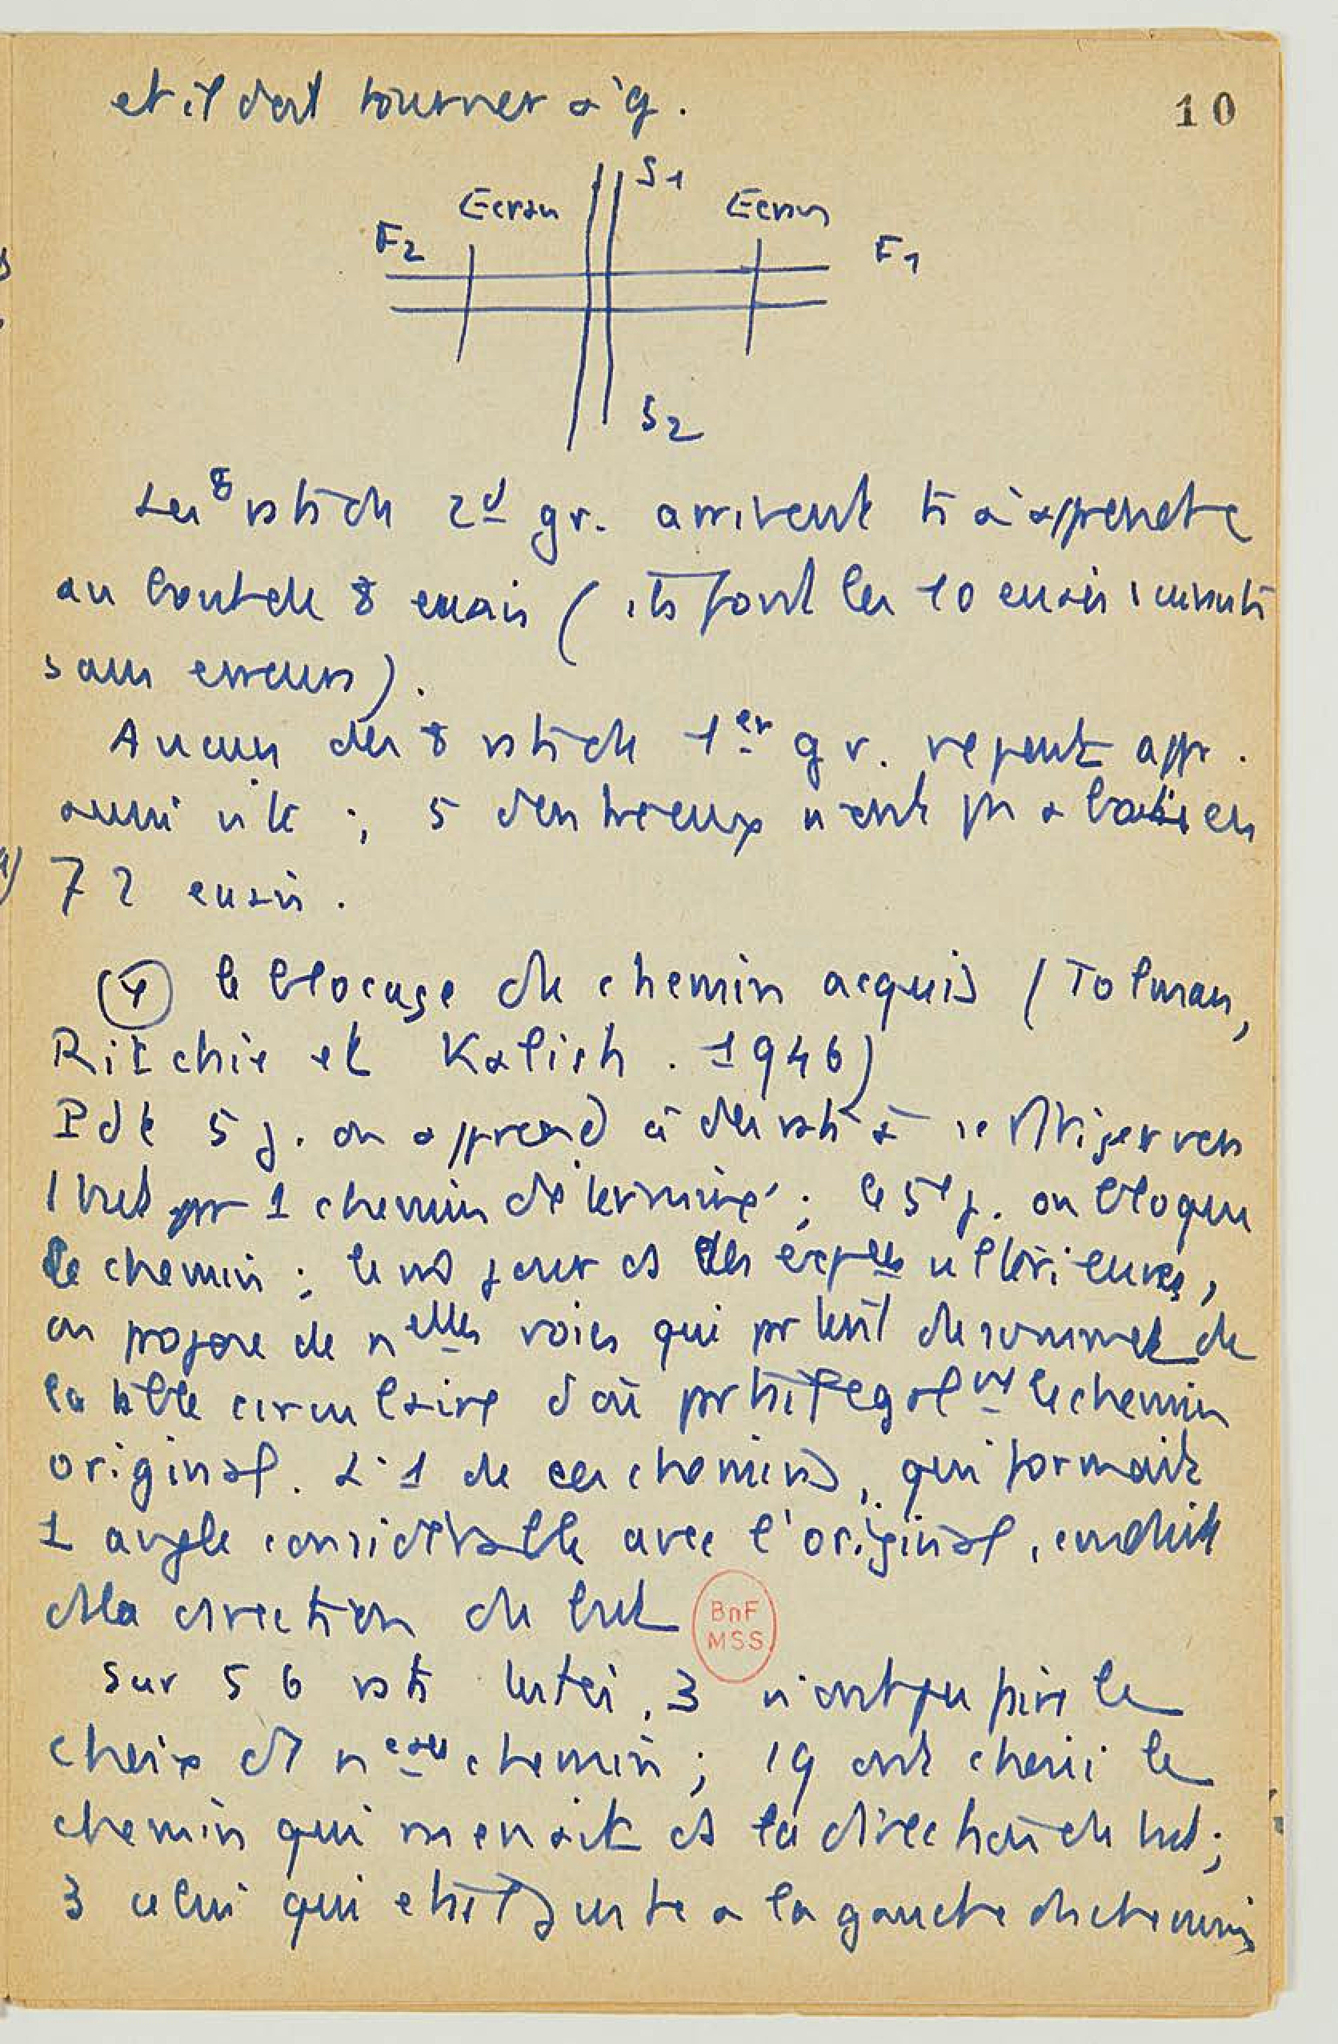 et il doit tourner à g.
10
S1
Ecran
Ecran
F2
F1
S2
Les 8 rats du 2d gr. arrivent ts à apprendre
au bout de 8 essais ( ils font les 10 essais suivants
sans erreurs).
Aucun des 8 rats du 1er gr. ne peut appr.
aussi vite ; 5 d'entre eux n'ont pas en
72 essais.
le blocage du chemin acquis (Tolman,
Ritchie et Kalish. 1946)
Pdt 5 j. on apprend à des rats à se diriger vers
1 but par 1 chemin déterminé ; le 5e j. on bloque
le chemin ; le jour et des ultérieures,
on propose de nelles voies qui partent du sommet de
la table circulaire d'où partait égalnt le chemin
original. L'1 de ces chemins, qui formait
1 angle considérable avec l'original, conduit
ds la direction du but
BnF
MSS
Sur 56 rats testés, 3 n'ont pu faire le
choix d'1 neau chemin ; 19 ont choisi le
chemin qui menait ds la direction du but ;
3 celui qui était juste à la gauche du chemin